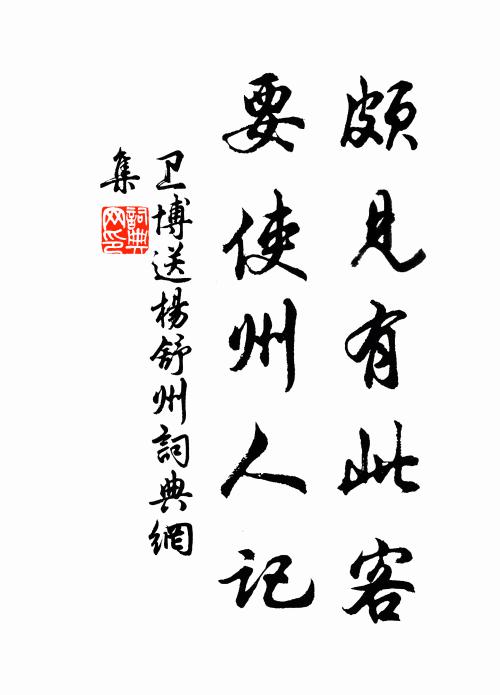 頗見有此客
要使州人記
卫博送楊舒州詞典網
集
詞典
网印